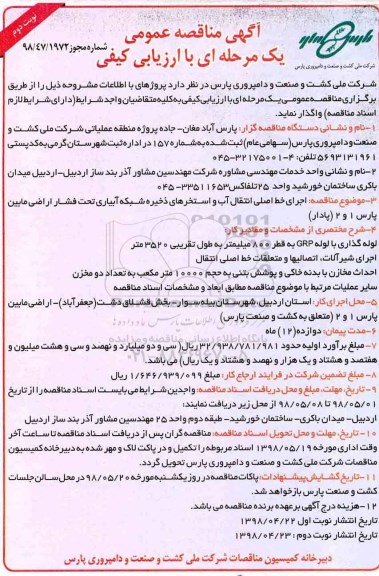 نوبت دوم
آگهی مناقصه عمومی
یک مرحله ای با ارزیابی کیفی
شماره مجوز ۹۸/۴۷/۱۹۷۲
شرکت ملی کشت و صنعت و دامپروری پارس
شرکت ملی کشت و صنعت و دامپروری پارس در نظر دارد پروژه‌ای با اطلاعات مشروحه ذیل را از طریق
برگزاری مناقصه عمومی یک مرحله ای با ارزیابی کیفی به کلیه متقاضیان واجد شرایط (دارای شرایط لازم
اسناد مناقصه) واگذار نماید.
۱-نام و نشانی دستگاه مناقصه گزار: پارس آباد مغان- جاده پروژه منطقه عملیاتی شرکت ملی کشت و
صنعت و دامپروری پارس (سهامی عام) ثبت شده به شماره ۱۵۷ در اداره ثبت شهرستان گرمی به کد پستی
۵۶۹۳۱۳۱۹۶۱ تلفن: ۴-۳۲۱۷۵۰۰۱-۰۴۵
۲-نام و نشانی واحد خدمات مهندسی مشاوره شرکت مهندسین مشاور آذر بند ساز اردبیل- اردبیل میدان
باکری ساختمان خورشید واحد ۲۵ تلفاکس ۳۳۵۱۱۶۵۳-۰۴۵
۳-موضوع مناقصه: اجرای خط اصلی انتقال آب و استخرهای ذخیره شبکه آبیاری تحت فشار اراضی مابین
پارس ۱ و ۲ (پادار)
۴-شرح مختصری از مشخصات و مقادیر کار
لوله گذاری با لوله GRP به قطر ۸۰۰ میلیمتر به طول تقریبی ۳۵۲۰ متر
اجرای شیرآلات، اتصالیها و متعلقات خط اصلی انتقال
احداث مخازن با بدنه خاکی و پوشش بتنی به حجم ۱۰۰۰۰ متر مکعب به تعداد دو مخزن
سایر عملیات مرتبط با موضوع مناقصه مطابق ابعاد و مشخصات اسناد مناقصه
۵-محل اجرای کار: استان اردبیل شهرستان بیله سوار- بخش قشلاق دشت (جعفرآباد)- اراضی مابین
پارس ۱ و ۲ (متعلق به کشت و صنعت پارس)
۶-مدت پیمان: دوازده (۱۲) ماه
۷-مبلغ برآورد اولیه حدود ۳۲/۹۳۸/۷۸۱/۹۸۱ ریال (سی و دو میلیارد و نهصد و سی و هشت میلیون و
هفتصد و هشتاد و یک هزار و نهصد و هشتاد و یک ریال) می باشد.
۸-مبلغ تضمین شرکت در فرایند ارجاع کار: مبلغ ۱/۶۴۶/۹۳۹/۰۹۹ ریال
۹-تاریخ، مهلت، مبلغ و محل دریافت اسناد مناقصه: واجدین شرایط می بایست اسناد مناقصه را از تاریخ
۹۸/۰۵/۰۱ تا ۹۸/۰۵/۰۸ از محل زیر دریافت نمایند:
اردبیل- میدان باکری- ساختمان خورشید- طبقه دوم واحد ۲۵ مهندسین مشاور آذر بند ساز اردبیل
۱۰-تاریخ، مهلت و محل تحویل اسناد مناقصه: مناقصه گران پس از دریافت اسناد مناقصه تا ساعت آخر
وقت اداری مورخه ۱۳۹۸/۰۵/۱۹ اسناد مربوطه را تکمیل و در پاکت لاک و مهر شده به دبیرخانه کمیسیون
مناقصات شرکت ملی کشت و صنعت و دامپروری پارس تحویل گردد.
۱۱-تاریخ گشایش پیشنهادات: پاکات مناقصه در روز یکشنبه مورخه ۹۸/۰۵/۲۰ در محل سالن جلسات
کشت و صنعت پارس بازخواهد شد.
۱۲-هزینه درج آگهی برعهده برنده مناقصه می باشد.
تاریخ انتشار نوبت اول: ۱۳۹۸/۰۴/۲۲
تاریخ انتشار نوبت دوم: ۱۳۹۸/۰۴/۲۳
دبیرخانه کمیسیون مناقصات شرکت ملی کشت و صنعت و دامپروری پارس